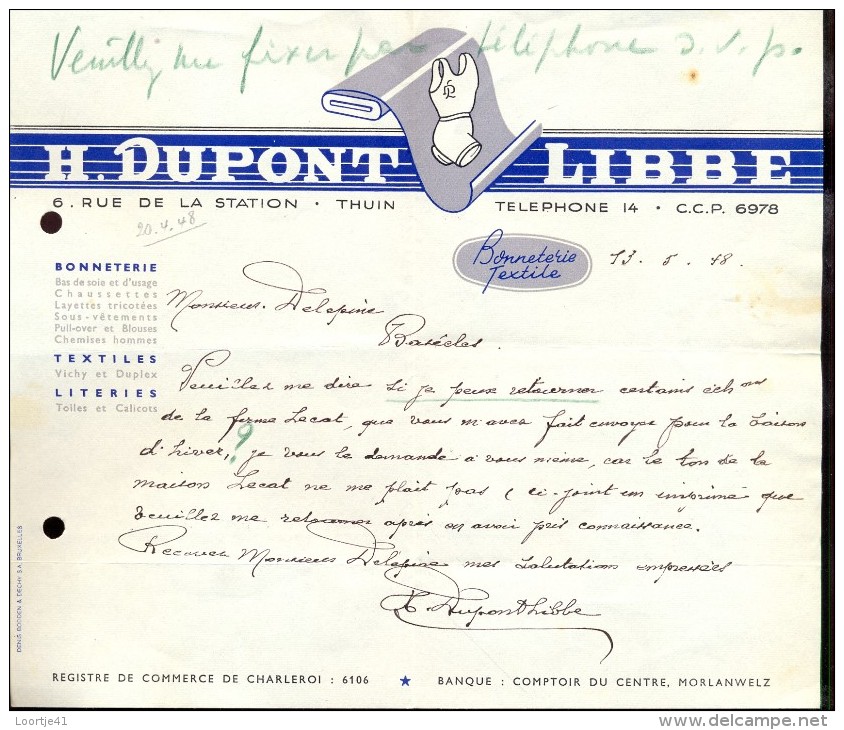 Veuillez me fixer par téléphone s.v.p.
H. DUPONT LIBBE
6. RUE DE LA STATION • THUIN TELEPHONE 14 • C.C.P. 6978
20.4.48
Bonneterie
Textile
13. 5. 48.
BONNETERIE
Bas de soie et d'usage
Chaussettes
Layettes tricotées
Sous-vêtements
Pull-over et Blouses
Chemises hommes
TEXTILES
Vichy et Duplex
LITERIES
Toiles et Calicots
Monsieur Delepine
Basècles.
Veuillez me dire si je peux retourner certains éch ons
de la firme Lecat, que vous m'avez fait envoyer pour la saison
d'hiver, ? je vous le demande à vous même, car le ton de la
maison Lecat ne me plait pas (ci-joint un imprimé que
veuillez me retourner après en avoir pris connaissance.
Recevez Monsieur Delepine mes salutations empressées
H. Dupont Libbe
DENIS BODDEN & DECHY S.A. BRUXELLES
REGISTRE DE COMMERCE DE CHARLEROI : 6106 ★ BANQUE : COMPTOIR DU CENTRE, MORLANWELZ
Loortje41
delcampe.net